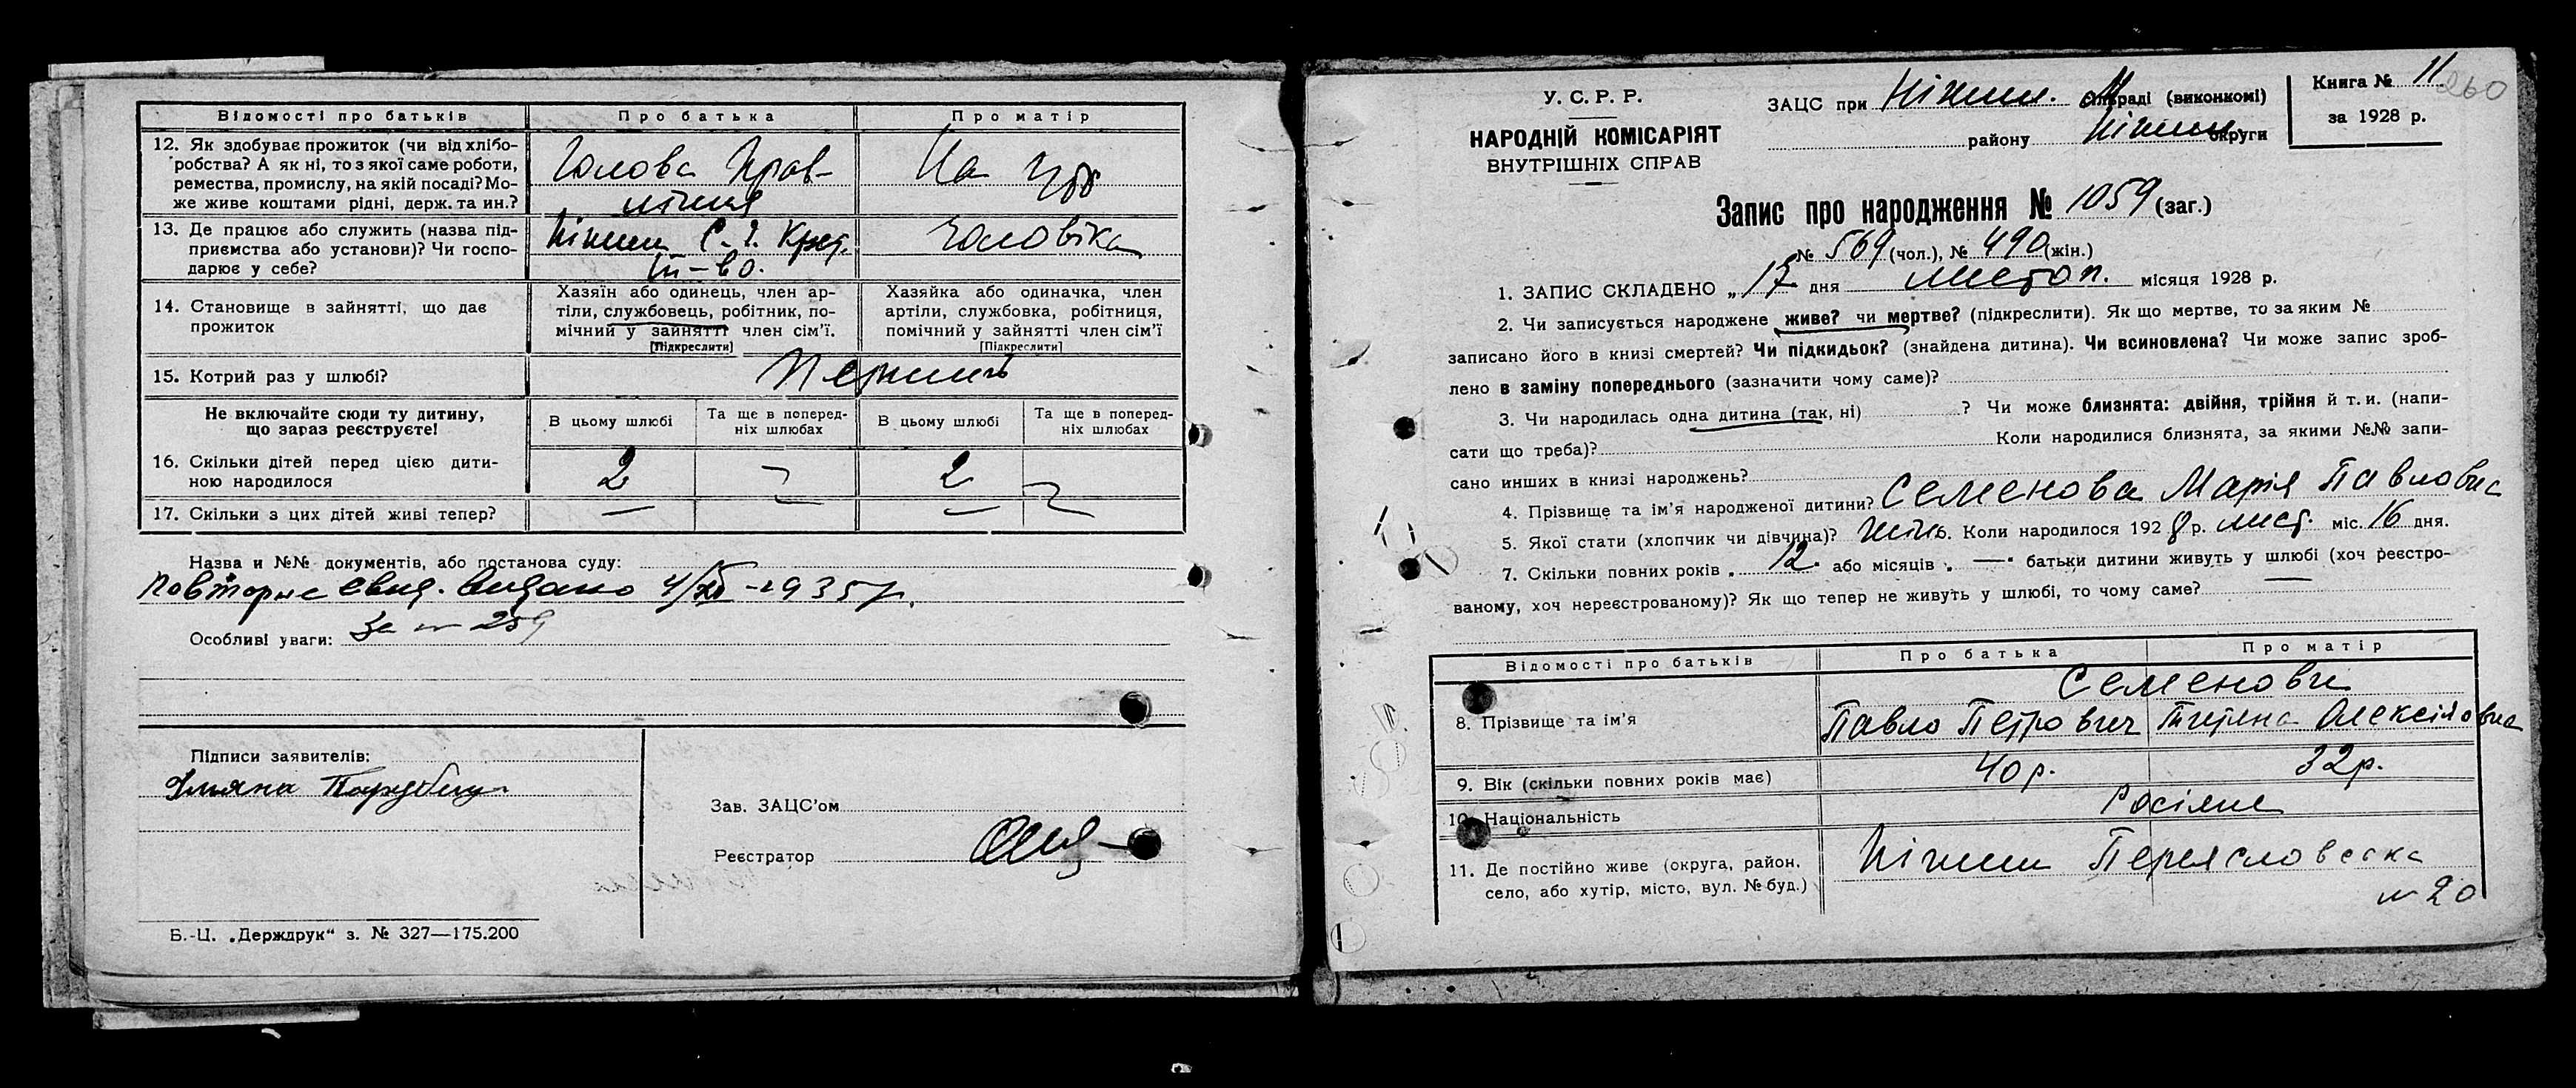 Відомості про батьків Про батька Про матір
12. Як здобуває прожиток (чи від хлібо-
робства? А як ні, то з якої саме роботи,
ремества, промислу, на якій посаді? Мо-
же живе коштами рідні, держ. та ин.?
Голова Прав-
ління
На
13. Де працює або служить (назва під-
приємства або установи)? Чи госпо-
дарює у себе?
Ніжин С. Г. Кред.
т-во.
чоловіка
14. Становище в зайнятті, що дає
прожиток
Хазяїн або одинець, член ар-
тіли, службовець, робітник, по-
мічний у зайнятті член сім'ї.
[Підкреслити]
Хазяйка або одиначка, член
артіли, службовка, робітниця,
помічний у зайнятті член сім'ї
[Підкреслити]
15. Котрий раз у шлюбі?
Не включайте сюди ту дитину,
що зараз реєструєте!
В цьому шлюбі
Та ще в поперед-
ніх шлюбах
В цьому шлюбі
Та ще в поперед-
ніх шлюбах
16. Скільки дітей перед цією дити-
ною народилося
2 2
17. Скільки з цих дітей живі тепер? — —
Назва и №№ документів, або постанова суду:
Повторне свид. видано 4/XI-1935 р.
Особливі уваги: За № 259
Підписи заявителів:
Уляна
Зав. ЗАЦС'ом
Реєстратор
Б.-Ц. „Держдрук“ з. № 327—175.200
У. С. Р. Р.
НАРОДНІЙ КОМІСАРІЯТ
ВНУТРІШНІХ СПРАВ
ЗАЦС при Ніжин. М раді (виконкомі)
району Ніжин. округи
Книга № 11
за 1928 р.
260
Запис про народження № 1059 (заг.)
№ 569 (чол.), № 490 (жін.)
1. ЗАПИС СКЛАДЕНО „17 дня листоп. місяця 1928 р.
2. Чи записується народжене живе? чи мертве? (підкреслити). Як що мертве, то за яким №
записано його в книзі смертей? Чи підкидьок? (знайдена дитина). Чи всиновлена? Чи може запис зроб-
лено в заміну попереднього (зазначити чому саме)?
3. Чи народилась одна дитина (так, ні) ? Чи може близнята: двійня, трійня й т. и. (напи-
сати що треба)? Коли народилися близнята, за якими №№ запи-
сано инших в книзі народжень?
4. Прізвище та ім'я народженої дитини? Семенова Марія Павловна
5. Якої статі (хлопчик чи дівчина)? жінь. Коли народилося 1928 р. лист. міс. 16 дня.
7. Скільки повних років „ 12 “ або місяців „ — “ батьки дитини живуть у шлюбі (хоч реєстро-
ваному, хоч нереєстрованому)? Як що тепер не живуть у шлюбі, то чому саме? —
Відомості про батьків Про батька Про матір
Семенови
8. Прізвище та ім'я Павло Петрович Тетяна Олексіївна
9. Вік (скільки повних років має) 40 р. 32 р.
10. Національність Росіяне
11. Де постійно живе (округа, район,
село, або хутір, місто, вул. № буд.)
Ніжин Переясловська
№ 20